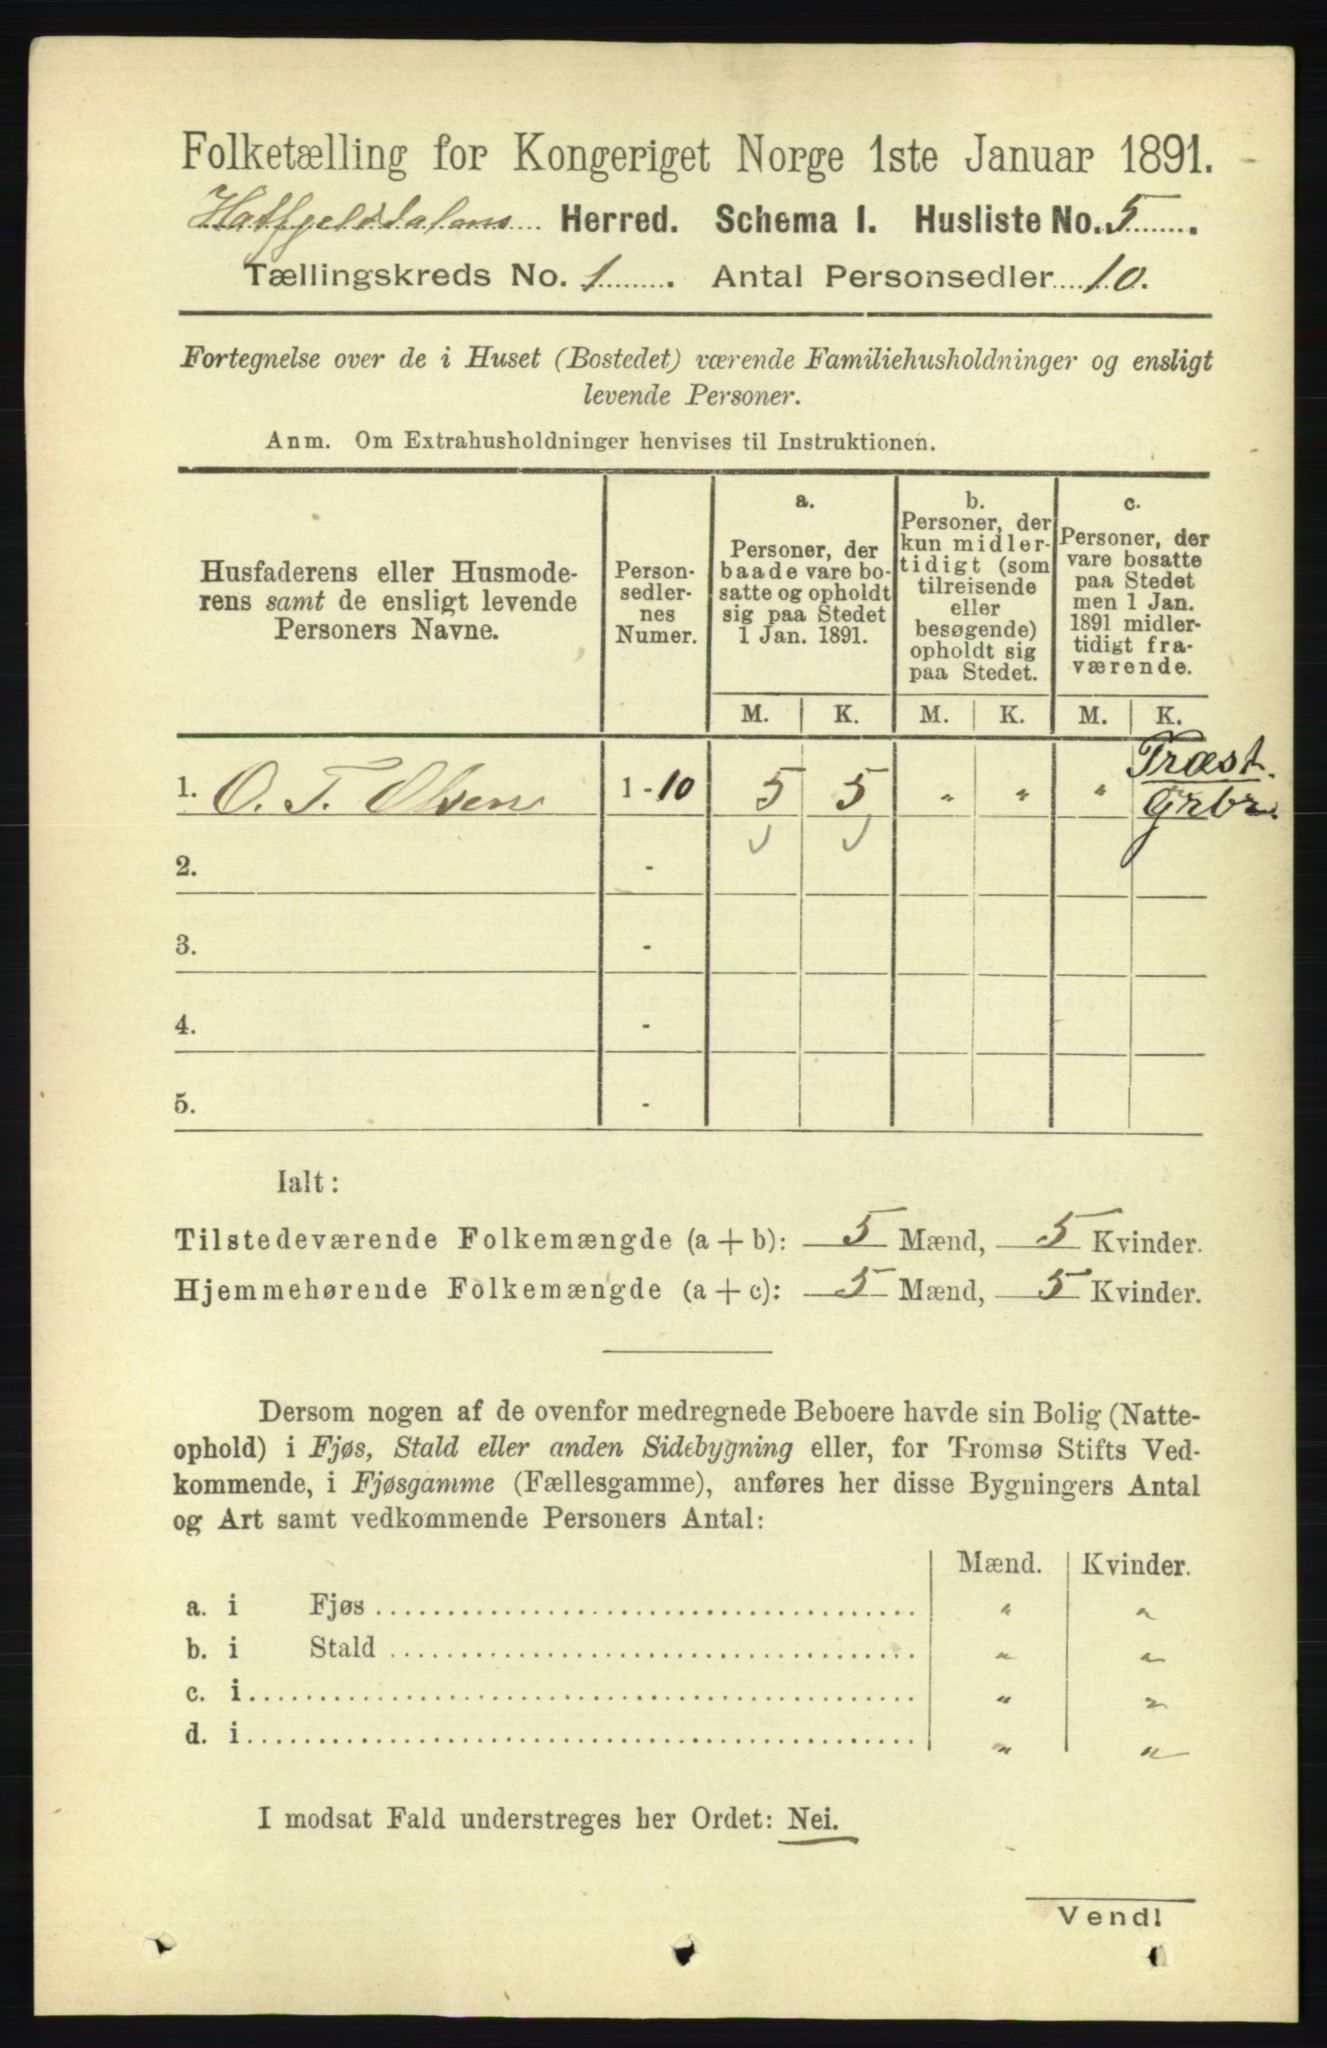 Folketælling for Kongeriget Norge 1ste Januar 1891.
Hatfjelddalens Herred. Schema I. Husliste No. 5.
Tællingskreds No. 1. Antal Personsedler 10.
Fortegnelse over de i Huset (Bostedet) værende Familiehusholdninger og ensligt
levende Personer.
Anm. Om Extrahusholdninger henvises til Instruktionen.
Husfaderens eller Husmode-
rens samt de ensligt levende
Personers Navne.
Person-
sedler-
nes
Numer.
a.
Personer, der
baade vare bo-
satte og opholdt
sig paa Stedet
1 Jan. 1891.
b.
Personer, der
kun midler-
tidigt (som
tilreisende
eller
besøgende)
opholdt sig
paa Stedet.
c.
Personer, der
vare bosatte
paa Stedet
men 1 Jan.
1891 midler-
tidigt fra-
værende.
M. K. M. K. M. K.
Træst.
1. O. T. Olsen 1-10 5 5 „ „ „ Grbr.
2. -
3. -
4. -
5. -
Ialt:
Tilstedeværende Folkemængde (a + b): 5 Mænd, 5 Kvinder.
Hjemmehørende Folkemængde (a + c): 5 Mænd, 5 Kvinder.
Dersom nogen af de ovenfor medregnede Beboere havde sin Bolig (Natte-
ophold) i Fjøs, Stald eller anden Sidebygning eller, for Tromsø Stifts Ved-
kommende, i Fjøsgamme (Fællesgamme), anføres her disse Bygningers Antal
og Art samt vedkommende Personers Antal:
Mænd. Kvinder.
a. i Fjøs „ „
b. i Stald „ „
c. i „ „
d. i „ „
I modsat Fald understreges her Ordet: Nei.
Vend!